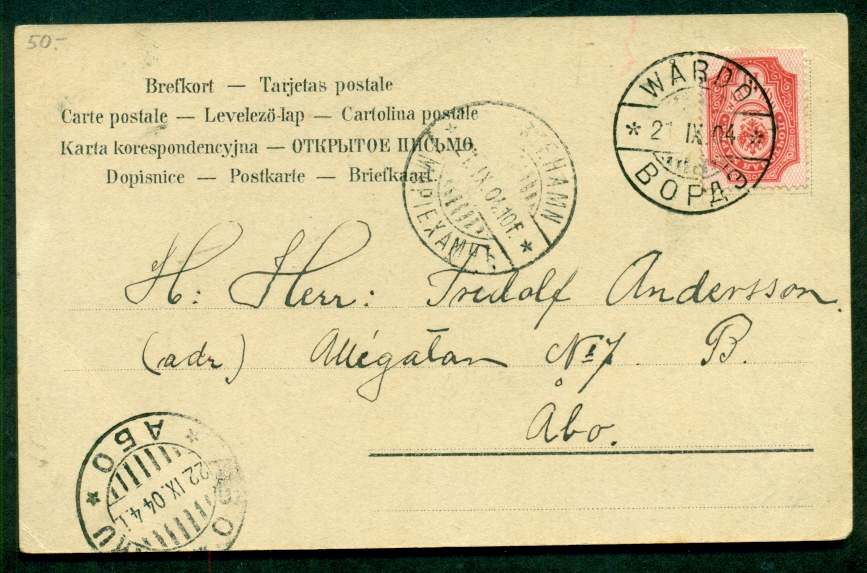 50.-
Brefkort — Tarjetas postale
Carte postale — Levelező-lap — Cartolina postale
Karta korespondencyjna — ОТКРЫТОЕ ПИСЬМО.
Dopisnice — Postkarte — Briefkaart
WÅRDÖ
* 21 IX.04 *
ВОРДЭ
RIEHAMN
21.IX.04.10 f.
* МАРІЕХАМНЪ *
H: Herr: Fridolf Andersson.
(adr.) Allégatan № 7 B.
Åbo.
* АБО *
22.IX.04 4.